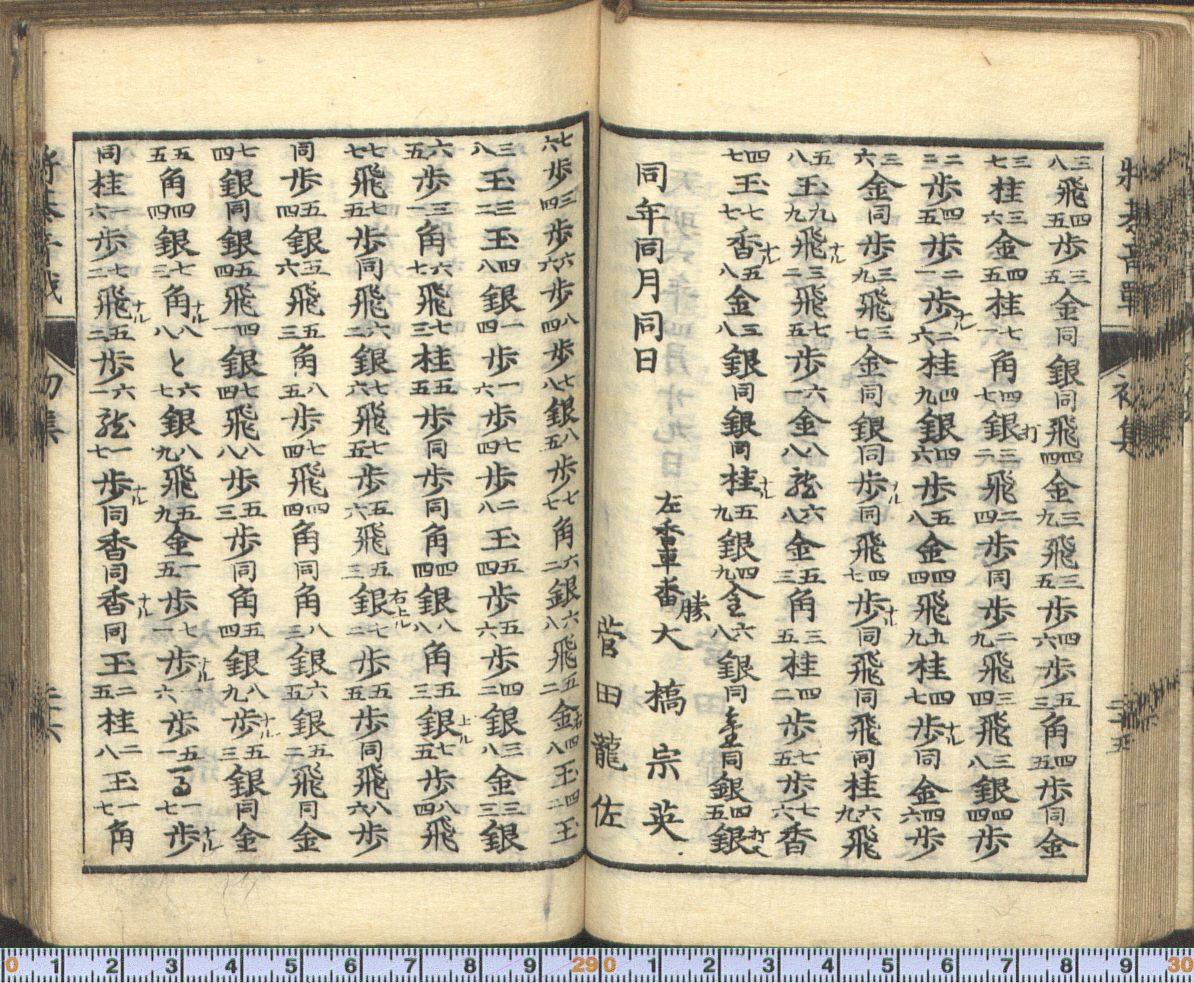 三八飛四五歩三五金同銀同飛打四四金三九飛三五歩四六歩五三角四五歩同金
三七桂三六金四五桂七一角四七銀三二飛二四歩同歩二九飛三四飛三八銀四四歩
二二歩四五歩二一歩ナル二六桂四九銀四六歩五八金四四飛九九桂四七歩ナル同金四六歩
三六金同歩三九飛三七金同銀同歩ナル同飛四七歩ナル同飛同飛同桂六九飛
五八玉九九飛ナル三二飛七五歩六八金八八龍六八金五三角三五桂四二歩七五歩七六香
四七玉七七香ナル五八金三八銀同銀同桂ナル五九銀四九金六八銀同金同銀四五銀打
同年同月同日
左香車番
勝大橋宗英
菅田龍佐
七六歩三四歩六六歩八四歩七八銀八五歩七七角六二銀六八飛五二金右四八玉四二玉
三八玉三二玉四八銀一四歩一六歩七四歩二八玉五四歩五六歩四二銀三八金三三銀
六五歩三一角六七飛七三桂五五歩同歩同角四四銀八八角五三銀上ル七五歩八四飛
七七飛七五歩同飛六二銀七六飛七五歩五六飛五三銀右上ル七二歩五五歩同飛八六歩
同歩五四銀五六飛五三角八五歩七四飛四四角同角八三銀六五銀五二飛同金
七四銀同銀五四飛四一銀七四飛八八歩五三歩同角五四銀八九歩ナル五三銀同金
五五角四四銀七三角ナル八八と六七銀八九飛五九金一五歩七一歩ナル一六歩五一馬一七歩ナル
同桂一六歩七二飛ナル五三歩六一龍一七歩ナル同香同香ナル同玉二五桂二八玉一七角